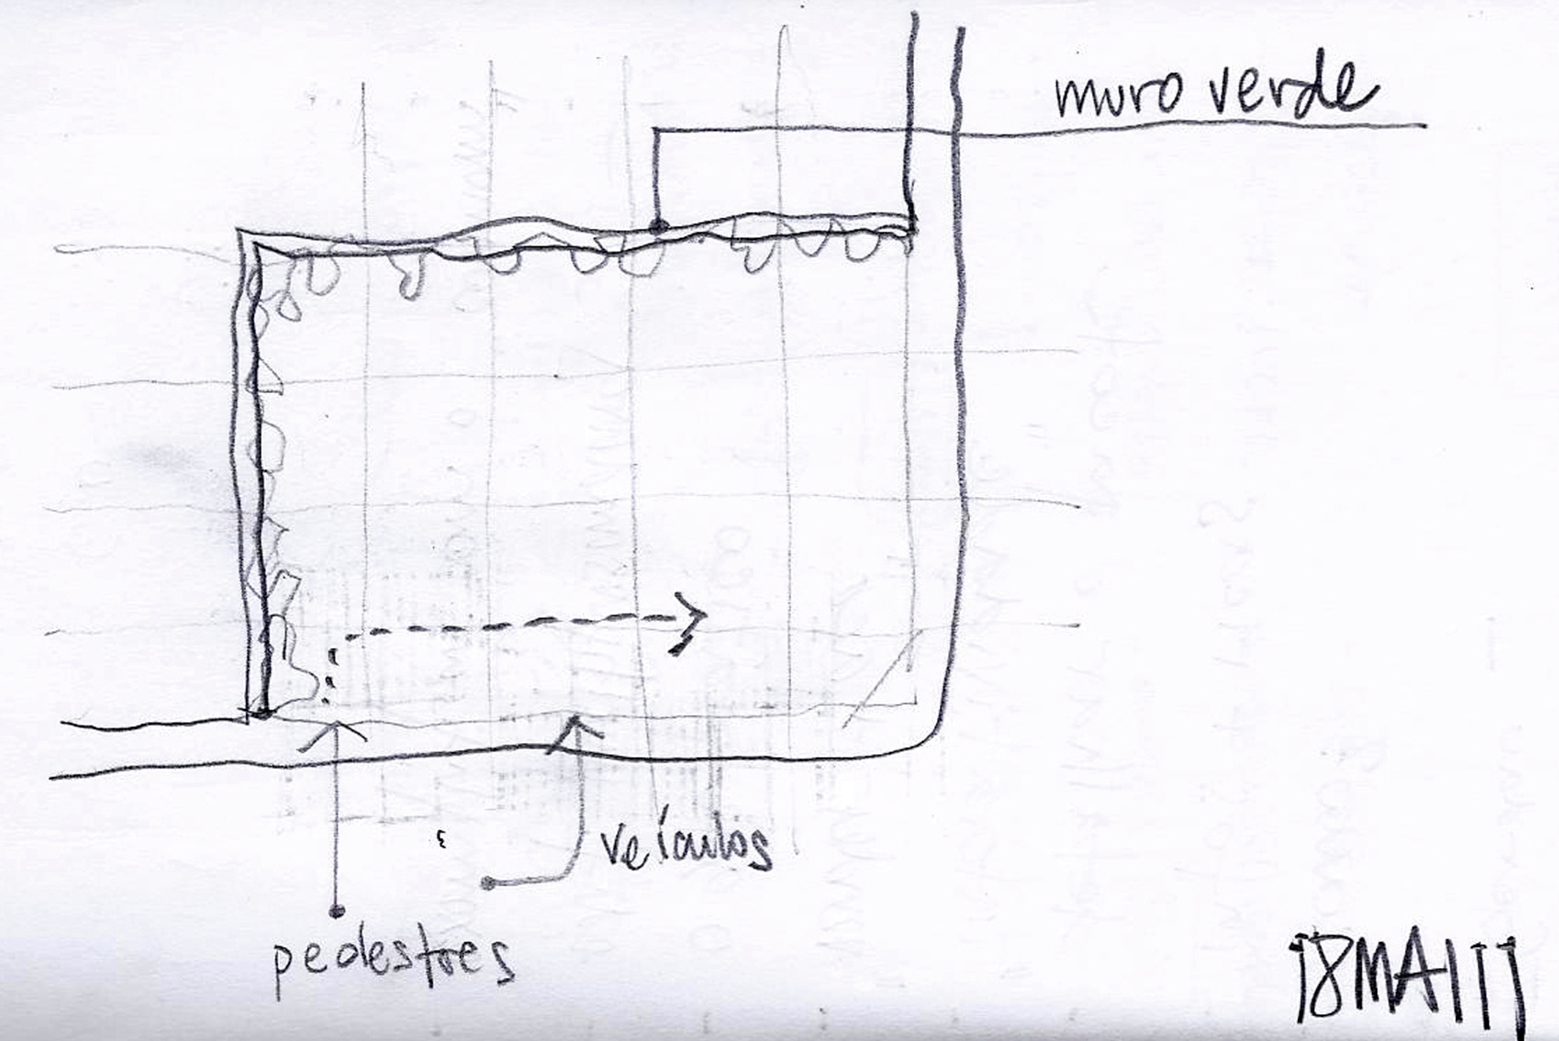 muro verde
veículos
pedestres
18MA111